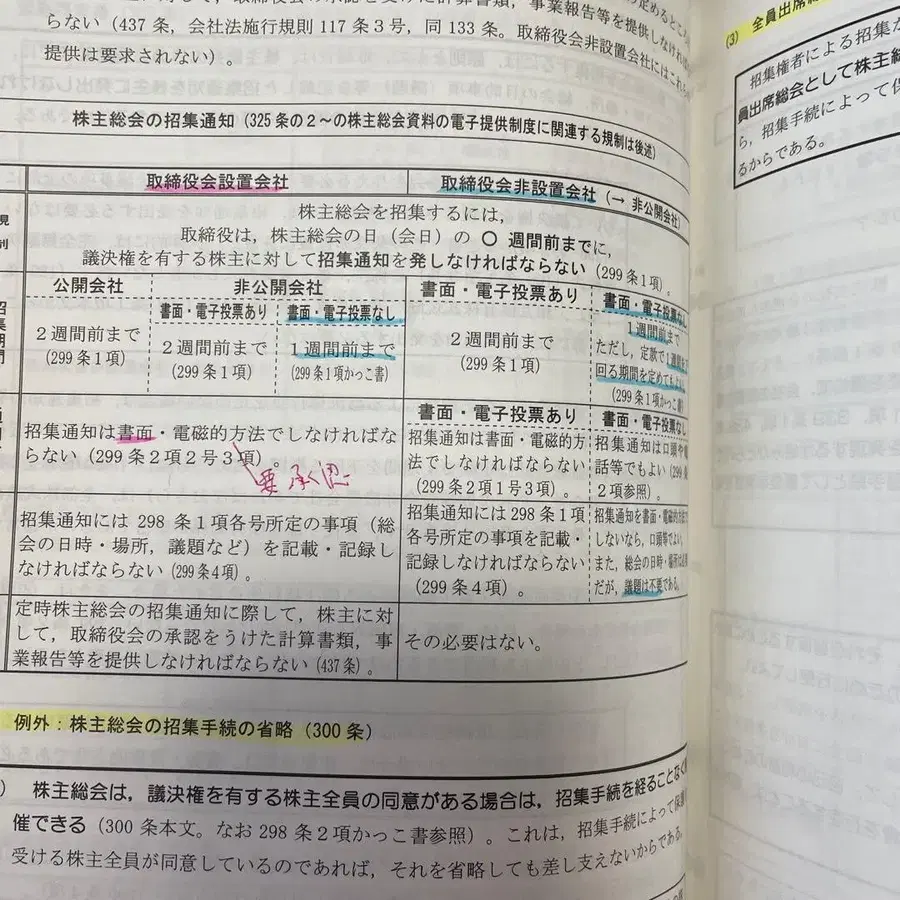 の定めるところ
事業報告等を提供しなければな
らない（437 条，会社法施行規則 117 条３号，同 133 条。取締役会非設置会社にはこれらの
提供は要求されない）。
株主総会の招集通知（325 条の２～の株主総会資料の電子提供制度に関連する規制は後述）
取締役会設置会社
取締役会非設置会社（→ 非公開会社）
株主総会を招集するには，
取締役は，株主総会の日（会日）の 〇 週間前までに，
議決権を有する株主に対して招集通知を発しなければならない（299 条１項）。
公開会社
２週間前まで
（299 条１項）
非公開会社
書面・電子投票あり
２週間前まで
（299 条１項）
書面・電子投票なし
１週間前まで
（299 条１項かっこ書）
書面・電子投票あり
２週間前まで
（299 条１項）
書面・電子投票なし
１週間前まで
ただし，定款で１週間を下
回る期間を定めてもよい
（299 条１項かっこ書）
招集通知は書面・電磁的方法でしなければな
らない（299 条２項２号３項）。
要承認
書面・電子投票あり
招集通知は書面・電磁的方
法でしなければならない
（299 条２項１号３項）。
書面・電子投票なし
招集通知は口頭や電
話等でもよい（299 条
２項参照）。
招集通知には 298 条１項各号所定の事項（総
会の日時・場所，議題など）を記載・記録し
なければならない（299 条４項）。
招集通知には 298 条１項
各号所定の事項を記載・
記録しなければならない
（299 条４項）。
招集通知を書面・電磁的方法で
しないなら，口頭等でよい。
また，総会の日時・場所は必要
だが，議題は不要である。
定時株主総会の招集通知に際して，株主に対
して，取締役会の承認をうけた計算書類，事
業報告等を提供しなければならない（437 条）。
その必要はない。
例外：株主総会の招集手続の省略（300 条）
） 株主総会は，議決権を有する株主全員の同意がある場合は，招集手続を経ることなく開
催できる（300 条本文。なお 298 条２項かっこ書参照）。これは，招集手続によって保護を
受ける株主全員が同意しているのであれば，それを省略しても差し支えないからである。
(3) 全員出席総
招集権者による招集が
員出席総会として株主総
ら，招集手続によって保
るからである。